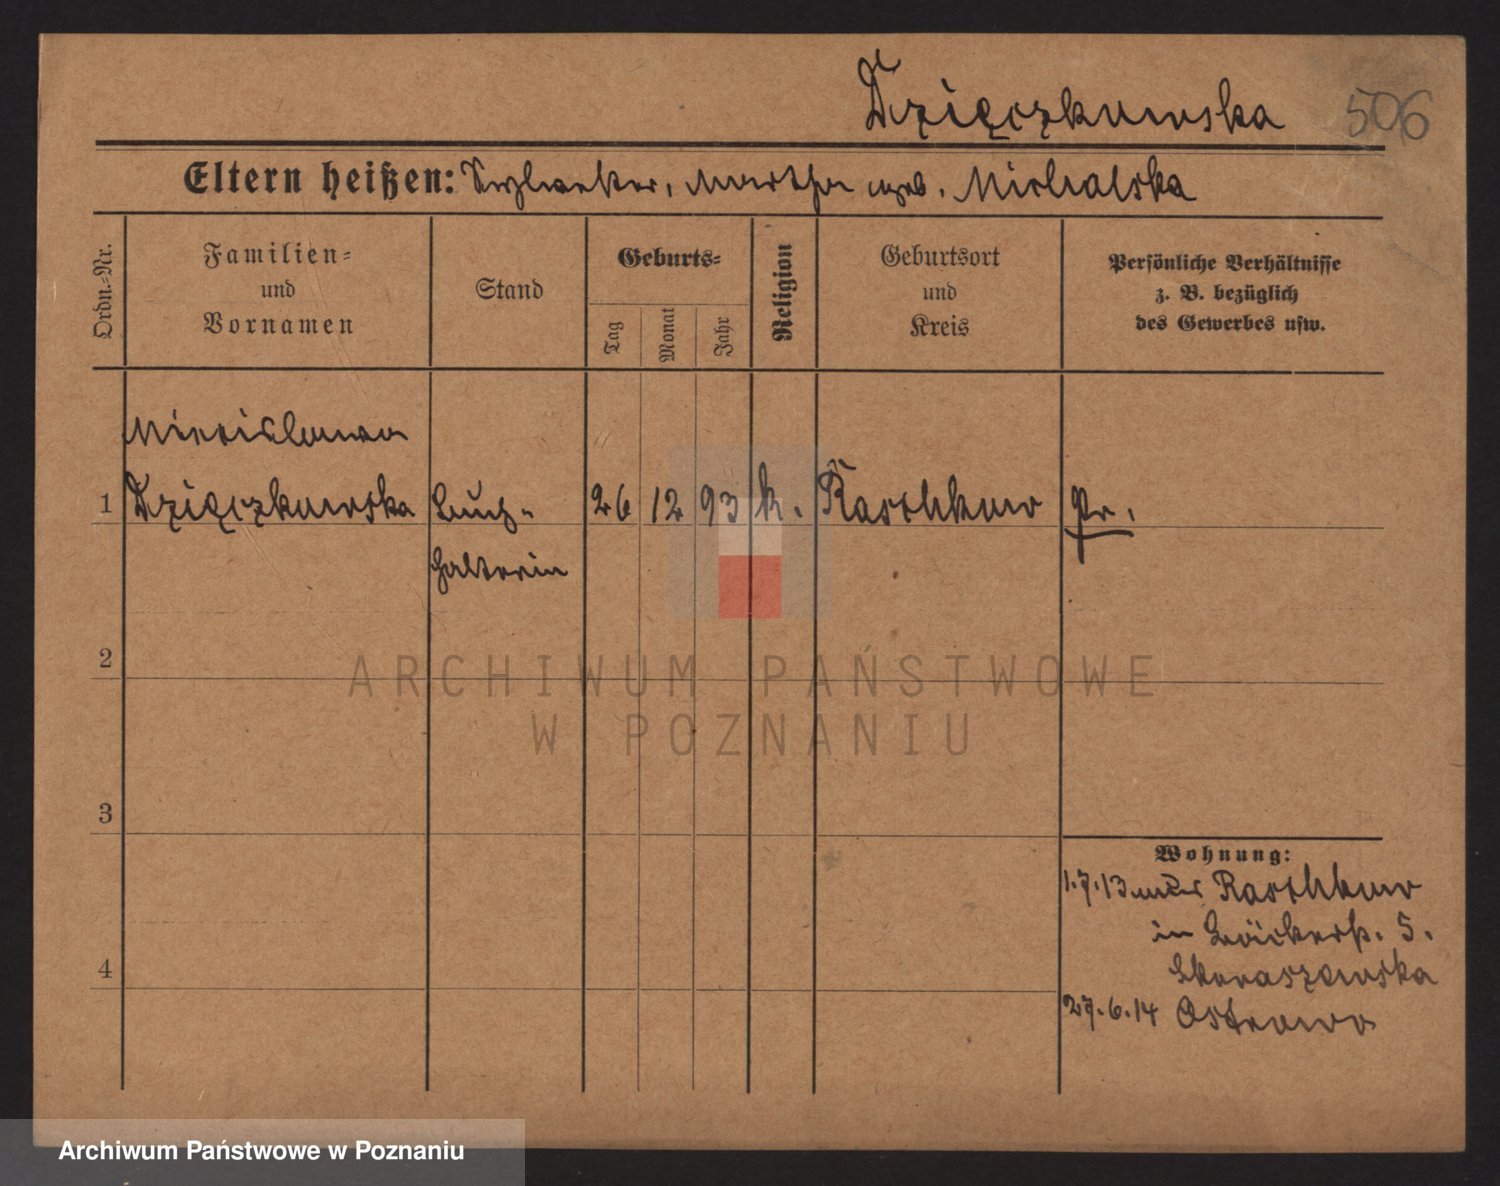 Dzięczkowska 506
Eltern heißen: Sylvester, Martha geb. Michalska
Ordn.-Nr.
Familien-
und
Vornamen
Stand
Geburts-
Tag
Monat
Jahr
Religion
Geburtsort
und
Kreis
Persönliche Verhältnisse
z. B. bezüglich
des Gewerbes usw.
Miecislawa
1 Dzięczkowska Buch- 26 12 93 k. Raschkow Pr.
halterin
2
3
4
Wohnung:
1.7.13 Raschkow
in Bäckerstr. 5.
Skoraszewska
27.6.14 Ostrowo
ARCHIWUM PAŃSTWOWE
W POZNANIU
Archiwum Państwowe w Poznaniu